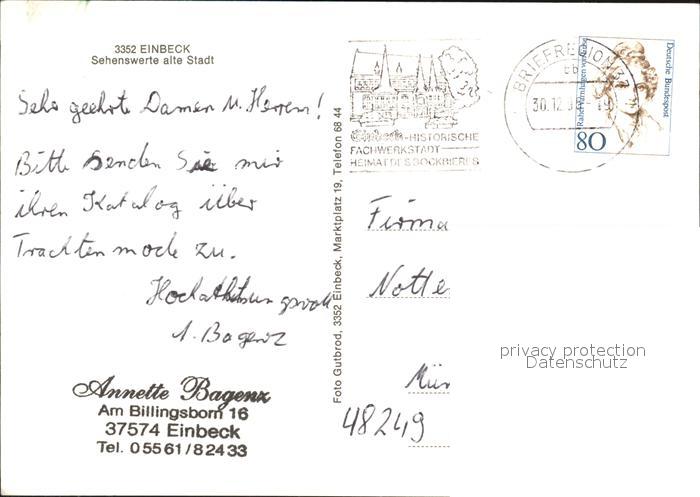 3352 EINBECK
Sehenswerte alte Stadt
Sehr geehrte Damen u. Herren!
Bitte senden Sie mir
ihren Katalog über
Trachtenmode zu.
Hochachtungsvoll
A. Bagenz
Annette Bagenz
Am Billingsborn 16
37574 Einbeck
Tel. 05561/82433
Foto Gutbrod, 3352 Einbeck, Marktplatz 19, Telefon 68 44
-HISTORISCHE
FACHWERKSTADT
HEIMAT DES BOCKBIERES
BRIEFREGION 37
30.12.
Deutsche Bundespost
Rahel Varnhagen von Ense
80
Firma
Notte
Mün
48249
privacy protection
Datenschutz